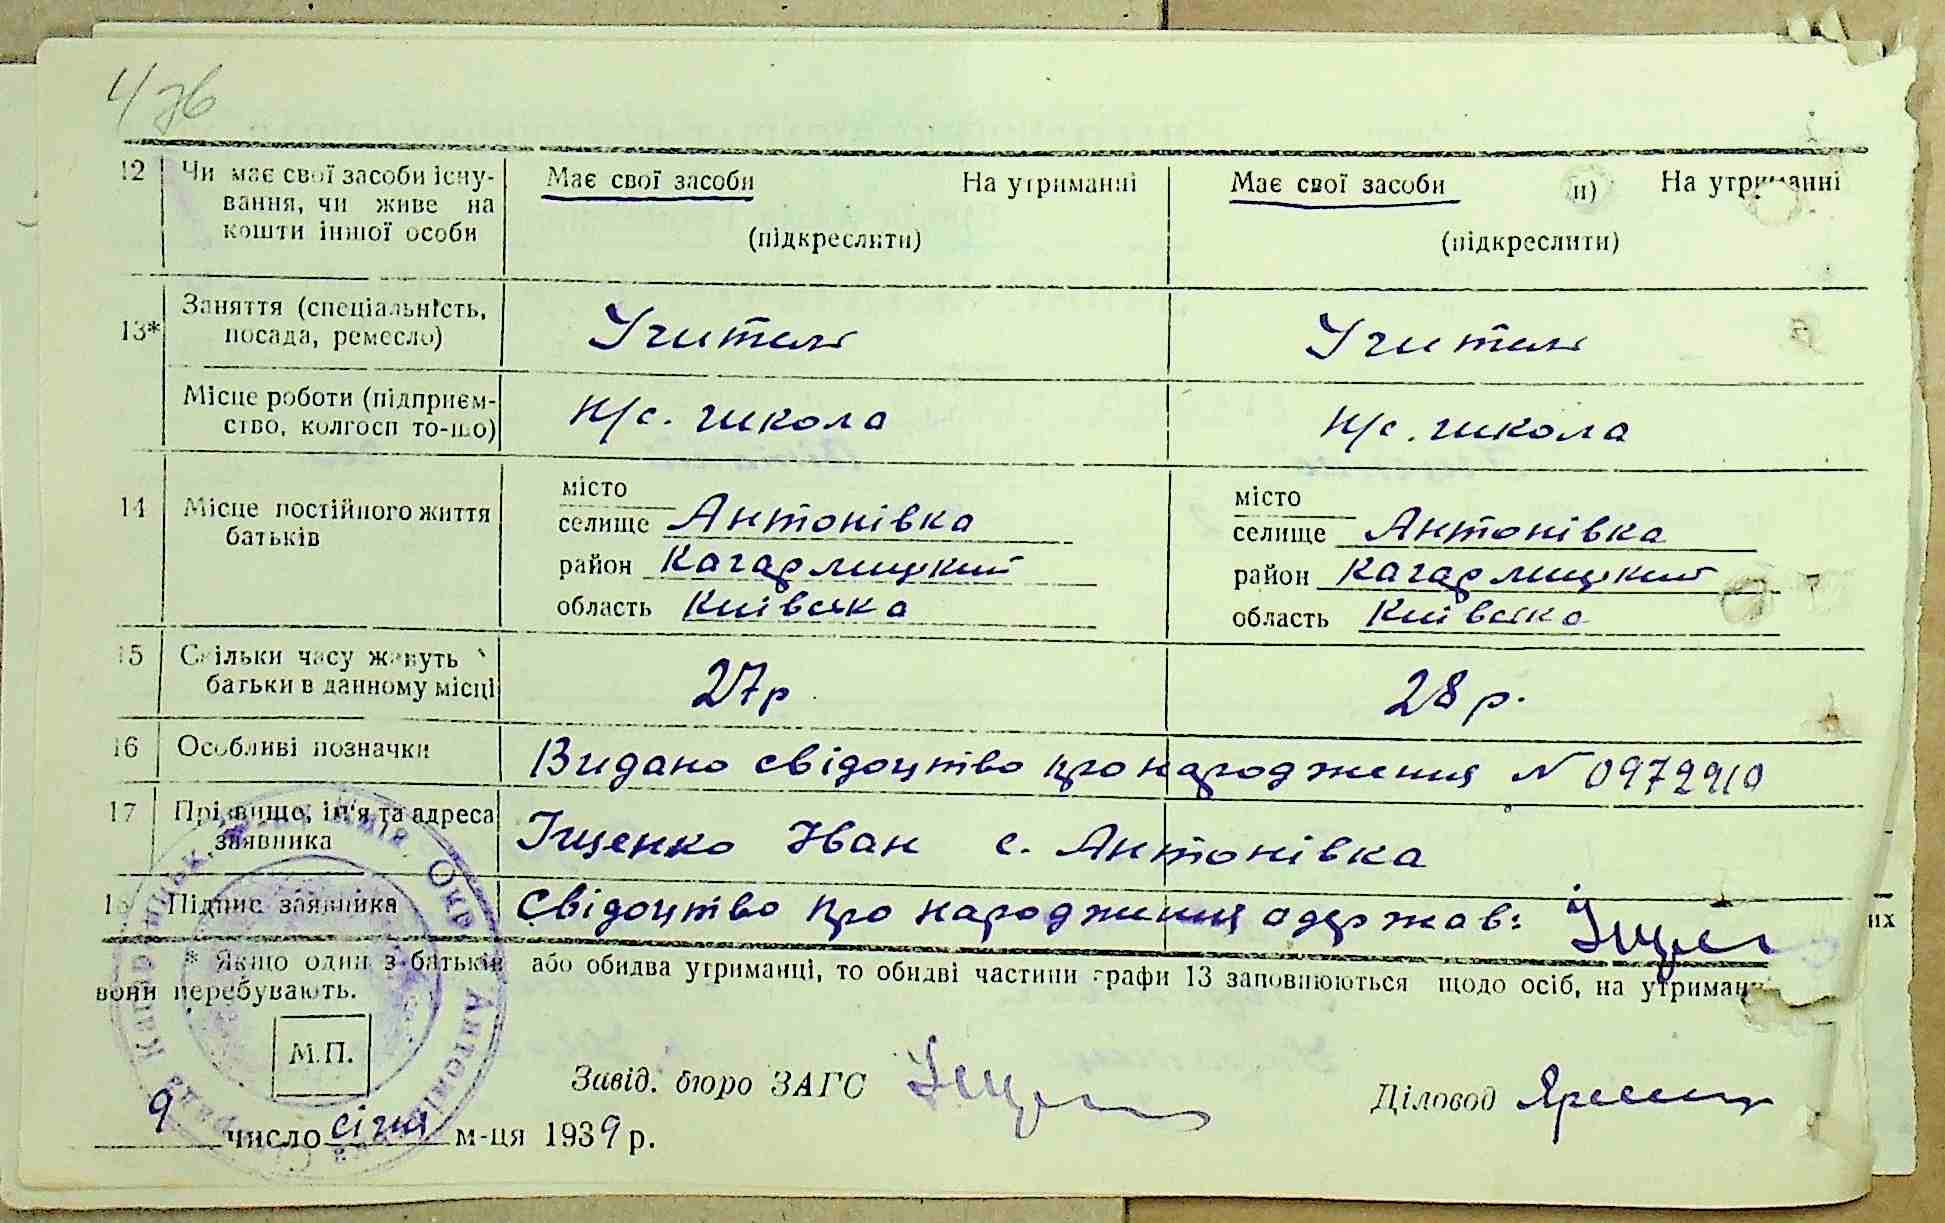 12 Чи має свої засоби існу- Має свої засоби На утриманні Має свої засоби и) На утриманні
вання, чи живе на
кошти іншої особи (підкреслити) (підкреслити)
13* Заняття (спеціальність, Учитель Учитель
посада, ремесло)
Місце роботи (підприєм- Н/с. школа Н/с. школа
ство, колгосп то-що)
14 Місце постійного життя місто місто
батьків селище Антонівка селище Антонівка
район Кагарлицький район Кагарлицький
область Київська область Київська
15 Скільки часу живуть 27р 28 р.
батьки в данному місці
16 Особливі позначки Видано свідоцтво про народження N 0972910
17 Прізвище, ім'я та адреса Іщенко Іван с. Антонівка
заявника
18 Підпис заявника Свідоцтво про народження одержав:
их
* Якщо один з батьків або обидва утриманці, то обидві частини графи 13 заповнюються щодо осіб, на утриманні
вони перебувають.
М.П.
Завід. бюро ЗАГС Діловод
9 число січня м-ця 1939 р.